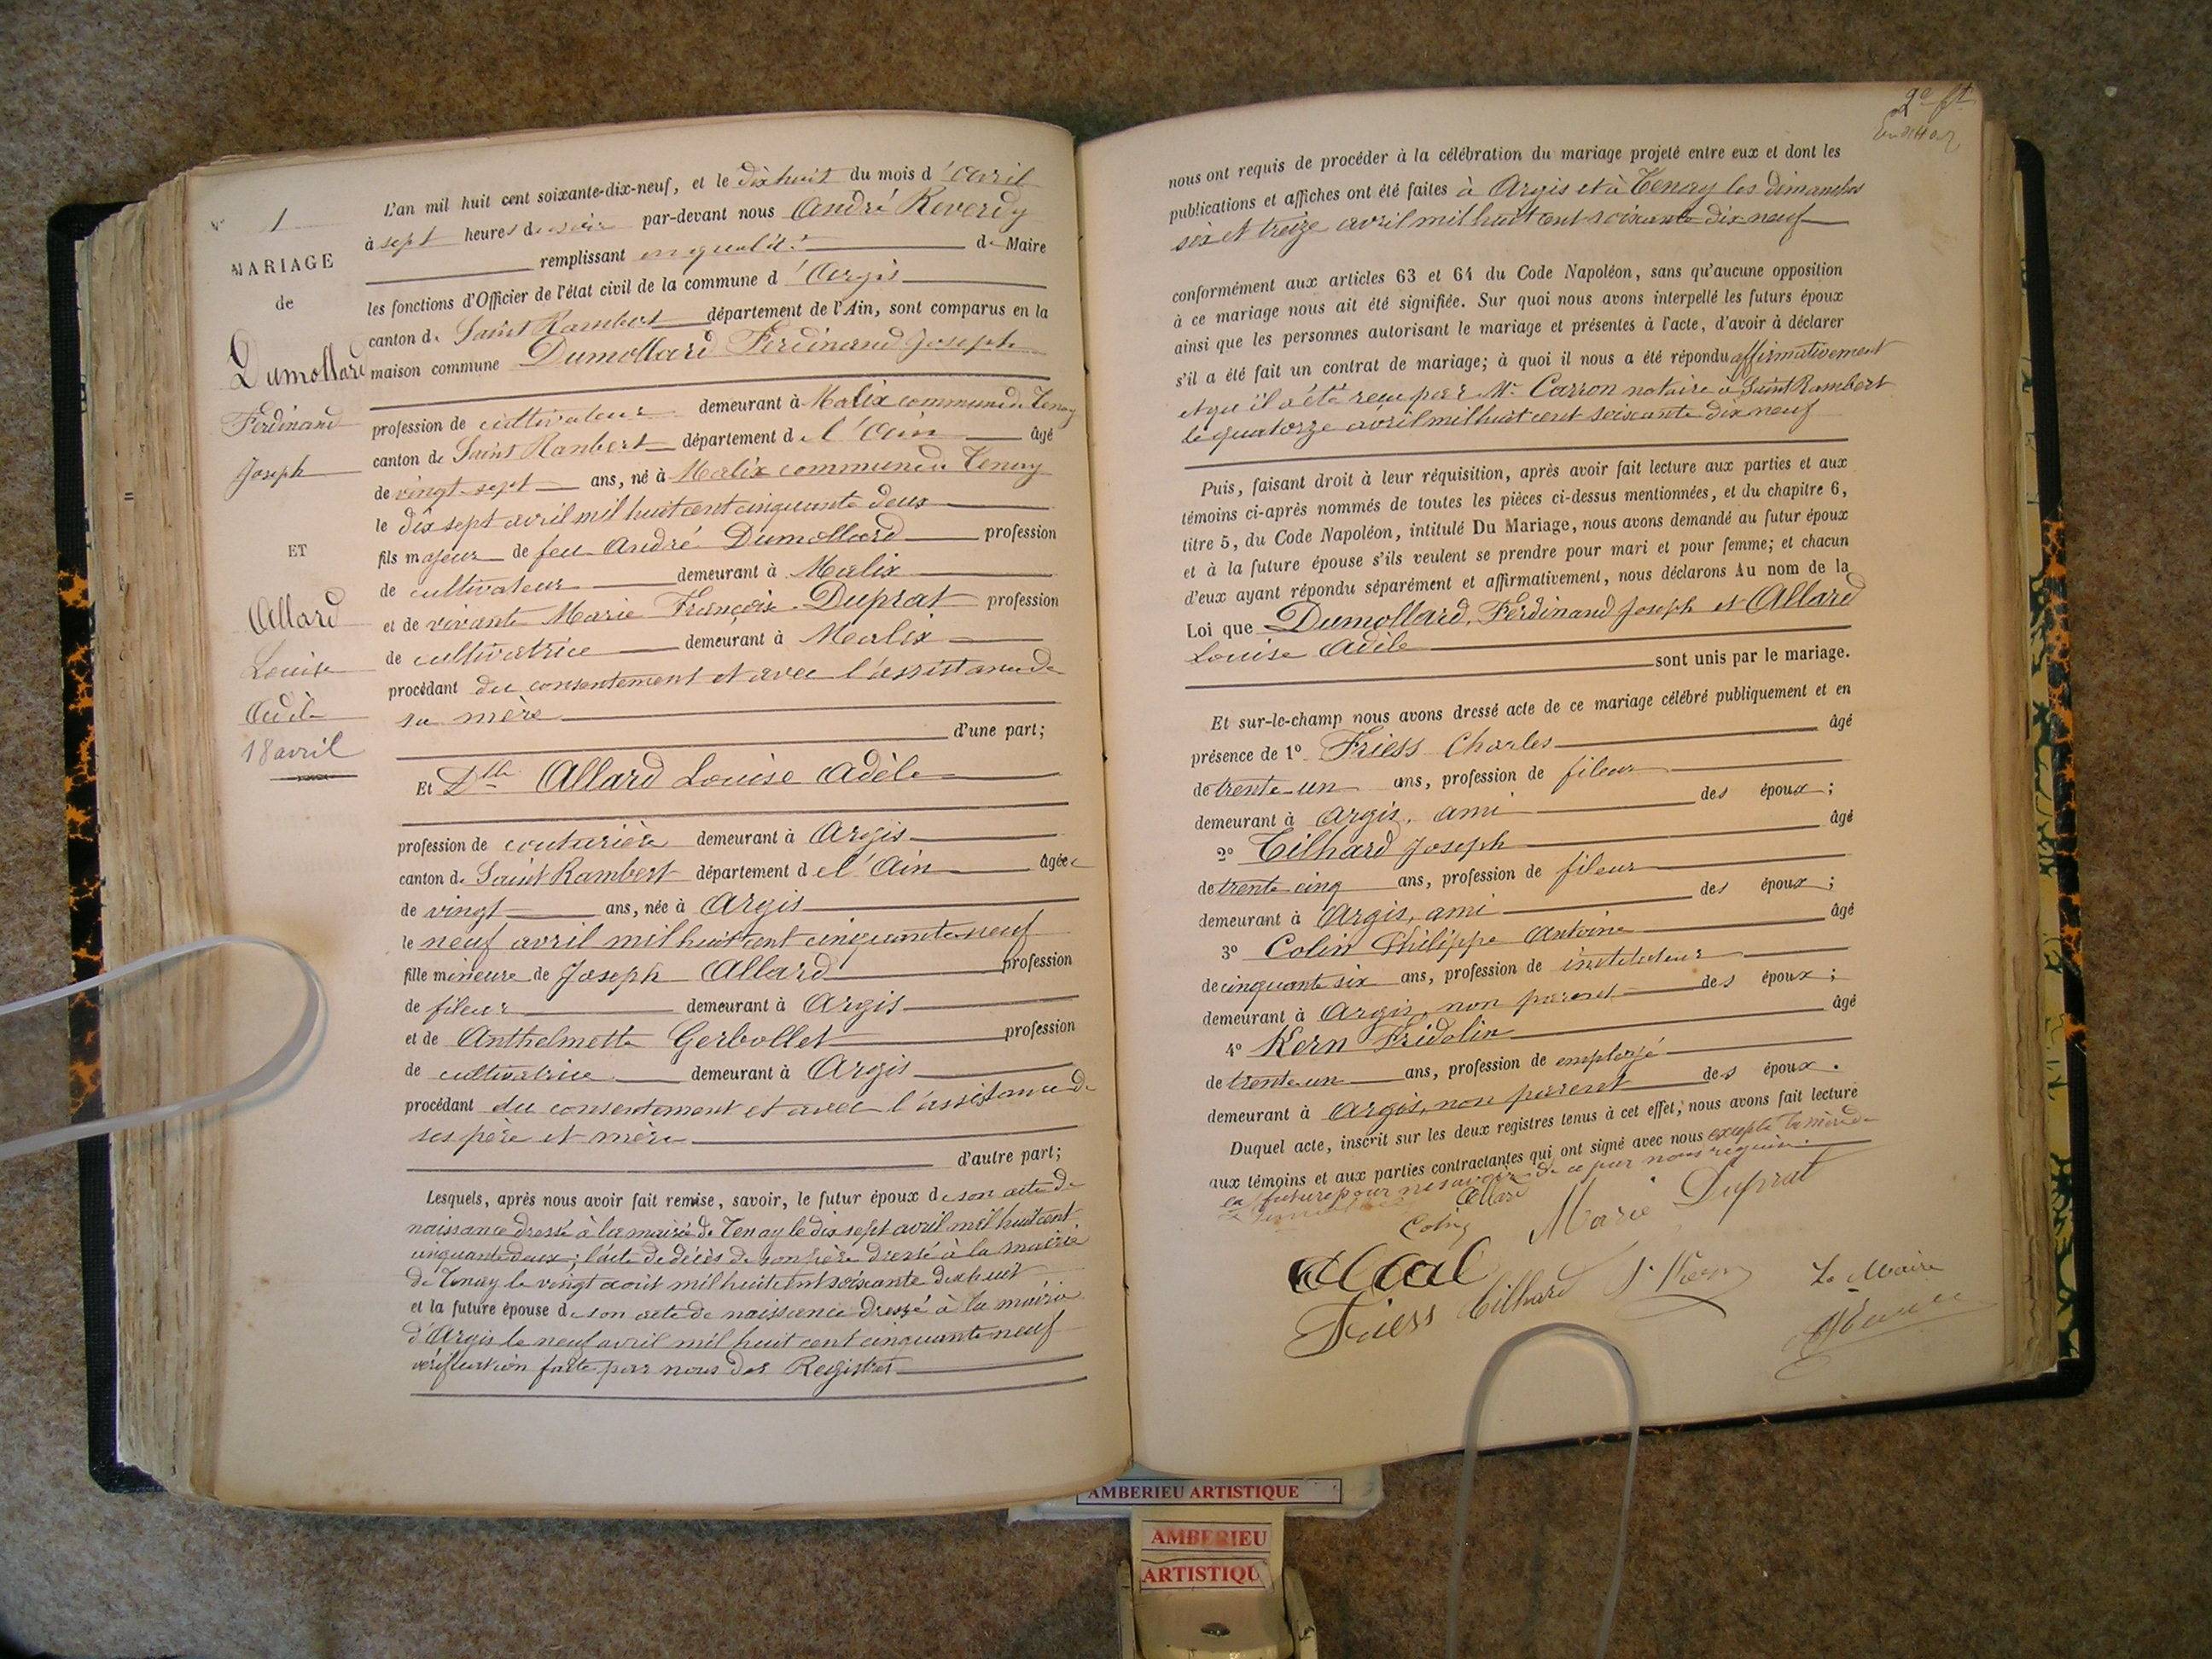 1
MARIAGE
de
Dumollard
Ferdinand
Joseph
ET
Allard
Louise
Adèle
18 avril
L'an mil huit cent soixante-dix-neuf, et le dix huit du mois d'avril
à sept heures du soir par-devant nous André Reverdy
remplissant en qualité de Maire
les fonctions d'Officier de l'état civil de la commune d'Argis
canton de Saint Rambert département de l'Ain, sont comparus en la
maison commune Dumollard Ferdinand Joseph
profession de cultivateur demeurant à Malix commune de Tenay
canton de Saint Rambert département de l'Ain âgé
de vingt-sept ans, né à Malix commune de Tenay
le dix sept avril mil huit cent cinquante deux
fils majeur de feu André Dumollard profession
de cultivateur demeurant à Malix
et de vivante Marie Françoise Duprat profession
de cultivatrice demeurant à Malix
procédant du consentement et avec l'assistance de
sa mère
d'une part;
Et Dlle Allard Louise Adèle
profession de couturière demeurant à Argis
canton de Saint Rambert département de l'Ain âgée
de vingt ans, née à Argis
le neuf avril mil huit cent cinquante neuf
fille mineure de Joseph Allard profession
de fileur demeurant à Argis
et de Anthelmette Gerbollet profession
de cultivatrice demeurant à Argis
procédant du consentement et avec l'assistance de
ses père et mère
d'autre part;
Lesquels, après nous avoir fait remise, savoir, le futur époux de son acte de
naissance dressé à la mairie de Tenay le dix sept avril mil huit cent
cinquante deux; l'acte de décès de son père dressé à la mairie
de Tenay le vingt août mil huit cent soixante dix huit
et la future épouse de son acte de naissance dressé à la mairie
d'Argis le neuf avril mil huit cent cinquante neuf
vérification faite par nous des Registres
nous ont requis de procéder à la célébration du mariage projeté entre eux et dont les
publications et affiches ont été faites à Argis et à Tenay les dimanches
six et treize avril mil huit cent soixante dix-neuf
conformément aux articles 63 et 64 du Code Napoléon, sans qu'aucune opposition
à ce mariage nous ait été signifiée. Sur quoi nous avons interpellé les futurs époux
ainsi que les personnes autorisant le mariage et présentes à l'acte, d'avoir à déclarer
s'il a été fait un contrat de mariage; à quoi il nous a été répondu affirmativement
et qu'il a été reçu par Me Carron notaire à Saint Rambert
le quatorze avril mil huit cent soixante dix neuf
Puis, faisant droit à leur réquisition, après avoir fait lecture aux parties et aux
témoins ci-après nommés de toutes les pièces ci-dessus mentionnées, et du chapitre 6,
titre 5, du Code Napoléon, intitulé Du Mariage, nous avons demandé au futur époux
et à la future épouse s'ils veulent se prendre pour mari et pour femme; et chacun
d'eux ayant répondu séparément et affirmativement, nous déclarons Au nom de la
Loi que Dumollard, Ferdinand Joseph et Allard
Louise Adèle
sont unis par le mariage.
Et sur-le-champ nous avons dressé acte de ce mariage célébré publiquement et en
présence de 1º Friess Charles âgé
de trente-un ans, profession de fileur
demeurant à Argis, ami des époux;
2º Tilhard Joseph âgé
de trente cinq ans, profession de fileur
demeurant à Argis, ami des époux;
3º Colin Philippe Antoine âgé
de cinquante six ans, profession de instituteur
demeurant à Argis, non parent des époux;
4º Kern Fridolin âgé
de trente un ans, profession de employé
demeurant à Argis, non parent des époux.
Duquel acte, inscrit sur les deux registres tenus à cet effet, nous avons fait lecture
aux témoins et aux parties contractantes qui ont signé avec nous excepté la mère de
la future pour ne savoir de ce par nous requise.
Allard
Colin
Marie Duprat
Friess
Tilhard
Le Maire
AMBERIEU ARTISTIQUE
AMBERIEU
ARTISTIQU